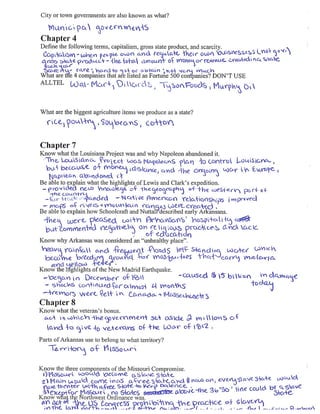 City or town governments are also known as what?
Municipal governments
Chapter 4
Define the following terms, capitalism, gross state product, and scarcity.
Capitalism - when people own and regulate their own businesses (not gov)
gross state product - the total amount of money or revenue created in a state
each year
rare; hard to get or obtain; not very much
What are the 4 companies that are listed as Fortune 500 companies? DON'T USE
ALLTEL Wal-Mart, Dillards, Tyson Foods, Murphy Oil
What are the biggest agriculture items we produce as a state?
rice, poultry, soybeans, cotton
Chapter 7
Know what the Louisiana Project was and why Napoleon abandoned it.
The Louisiana Project was Napoleons plan to control Louisiana,
but because of money, distance, and the ongoing war in Europe,
Napoleon abandoned it
Be able to explain what the highlights of Lewis and Clark's expedition.
- provided new knowledge of the geography of the western part of
the country
- Native American relationships improved
- maps of rivers + mountain ranges were created
Be able to explain how Schoolcraft and Nuttall described early Arkansans.
they were pleased with Arkansans' hospitality
but commented negatively on religious practices and lack
of education
Know why Arkansas was considered an "unhealthy place".
heavy rainfall and frequent floods left standing water which
became breeding grounds for mosquitoes that carry malaria
and yellow fever
Know the highlights of the New Madrid Earthquake.
- began in December of 1811 - caused $15 billion in damage
- shocks continued for almost 4 months today
- tremors were felt in Canada + Massachusetts
Chapter 8
Know what the veteran's bonus.
act in which the government set aside 2 millions of
land to give to veterans of the War of 1812.
Parts of Arkansas use to belong to what territory?
Territory of Missouri
Know the three components of the Missouri Compromise.
1) Missouri would become a slave state
2) Main would come in as a free state and from now on, every slave state would
have to enter with a free state to keep balance.
3) except for Missouri, no states above the 36°30' line could be a slave
State
Know what the Northwest Ordinance was.
an act of the US Congress prohibiting the practice of slavery
in the land